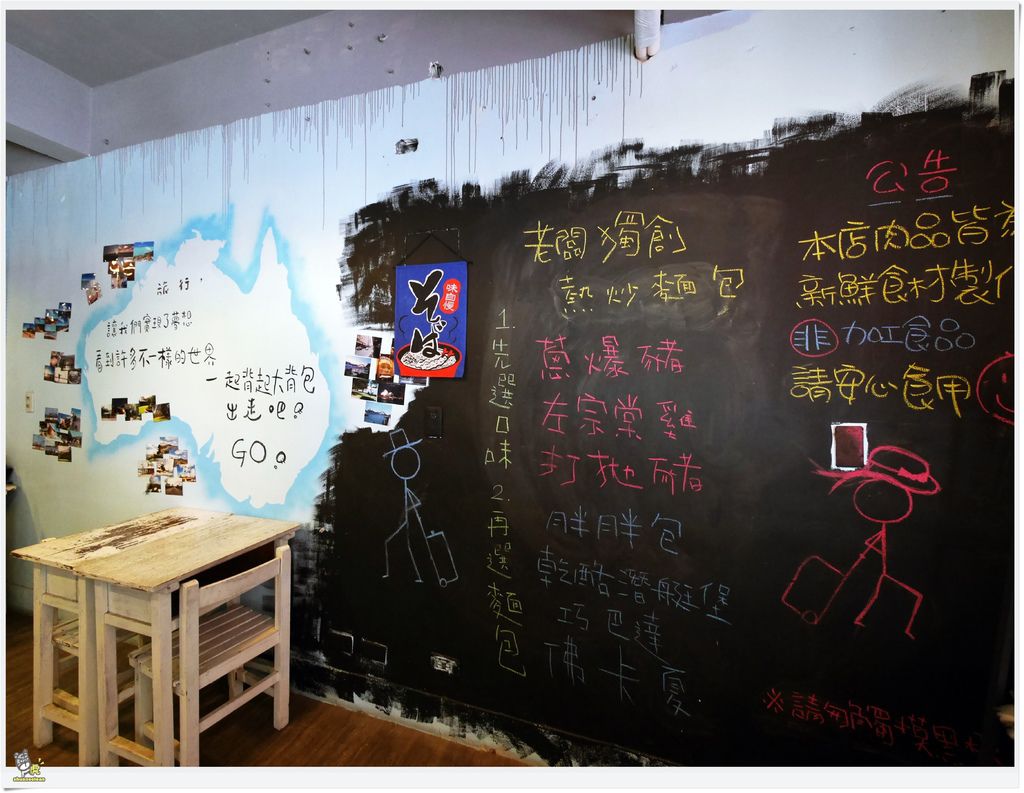 旅行，
讓我們實現了夢想
看到許多不一樣的世界
一起背起大背包
出走吧？
GO。
味自慢
そば
1. 先選口味
2. 再選麵包
老闆獨創
熱炒麵包
蔥爆豬
左宗棠雞
打拋豬
胖胖包
乾酪潛艇堡
巧巴達
佛卡夏
公告
本店肉品皆為
新鮮食材製作
非加工食品
請安心食用
※請勿觸摸黑